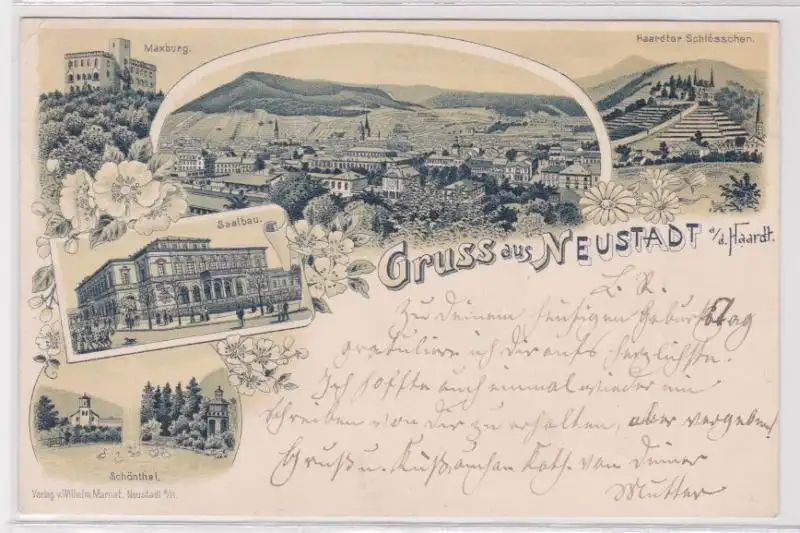 Maxburg.
Haardter Schlösschen.
Saalbau.
Gruss aus Neustadt a/d. Haardt.
L. R.
Zu Deinem heutigen Geburtstag
gratuliere ich Dir aufs herzlichste.
Ich hoffte auch einmal wieder ein
Schreiben von Dir zu erhalten, aber vergebens!
Gruß u. Kuß, an Kath. von Deiner
Mutter
Schönthal.
Verlag v. Wilhelm Marnet, Neustadt a/H.